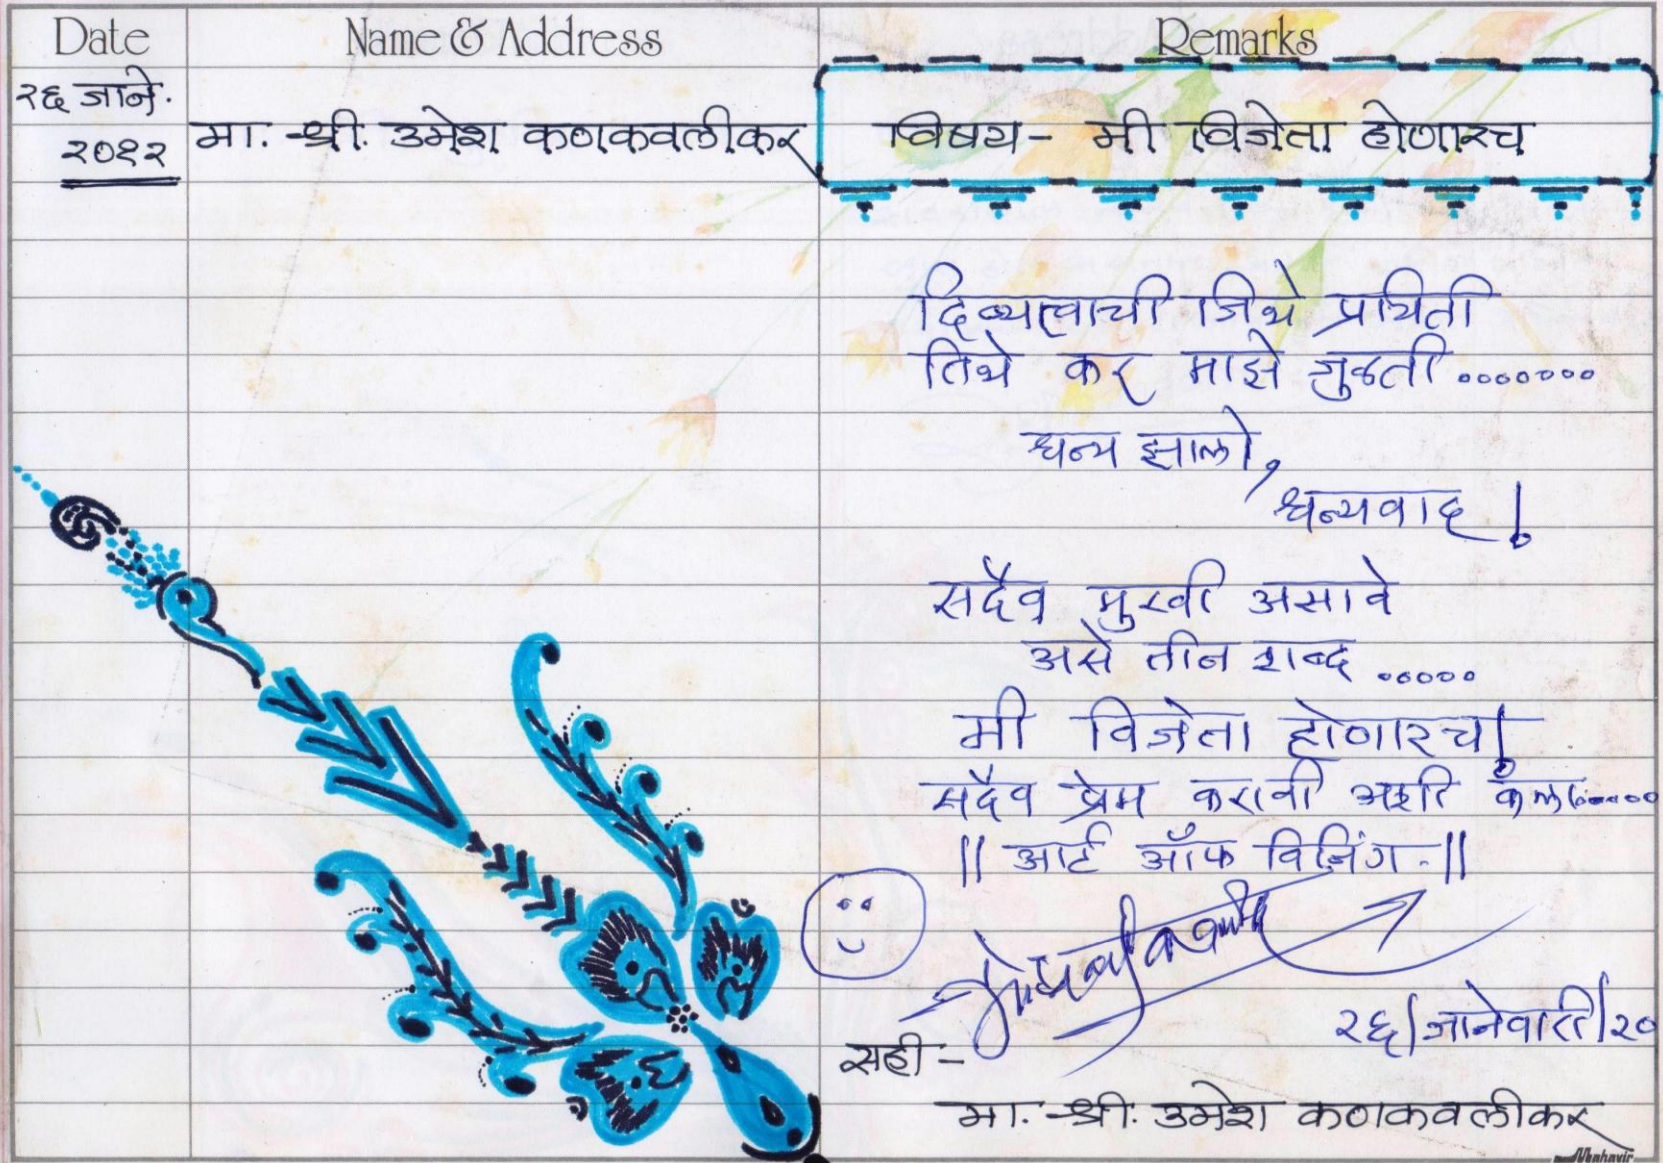 Date Name & Address Remarks
२६ जाने.
२०१२
मा. श्री. उमेश कणकवलीकर
विषय - मी विजेता होणारच
दिव्यत्वाची जिथे प्रचिती
तिथे कर माझे जुळती .......
धन्य झालो,
धन्यवाद !
सदैव मुखी असावे
असे तीन शब्द .....
मी विजेता होणारच!
सदैव प्रेम करावी अशी कला.....
|| आर्ट ऑफ विनिंग. ||
२६/जानेवारी/२०
सही -
मा. श्री. उमेश कणकवलीकर
Mahavir